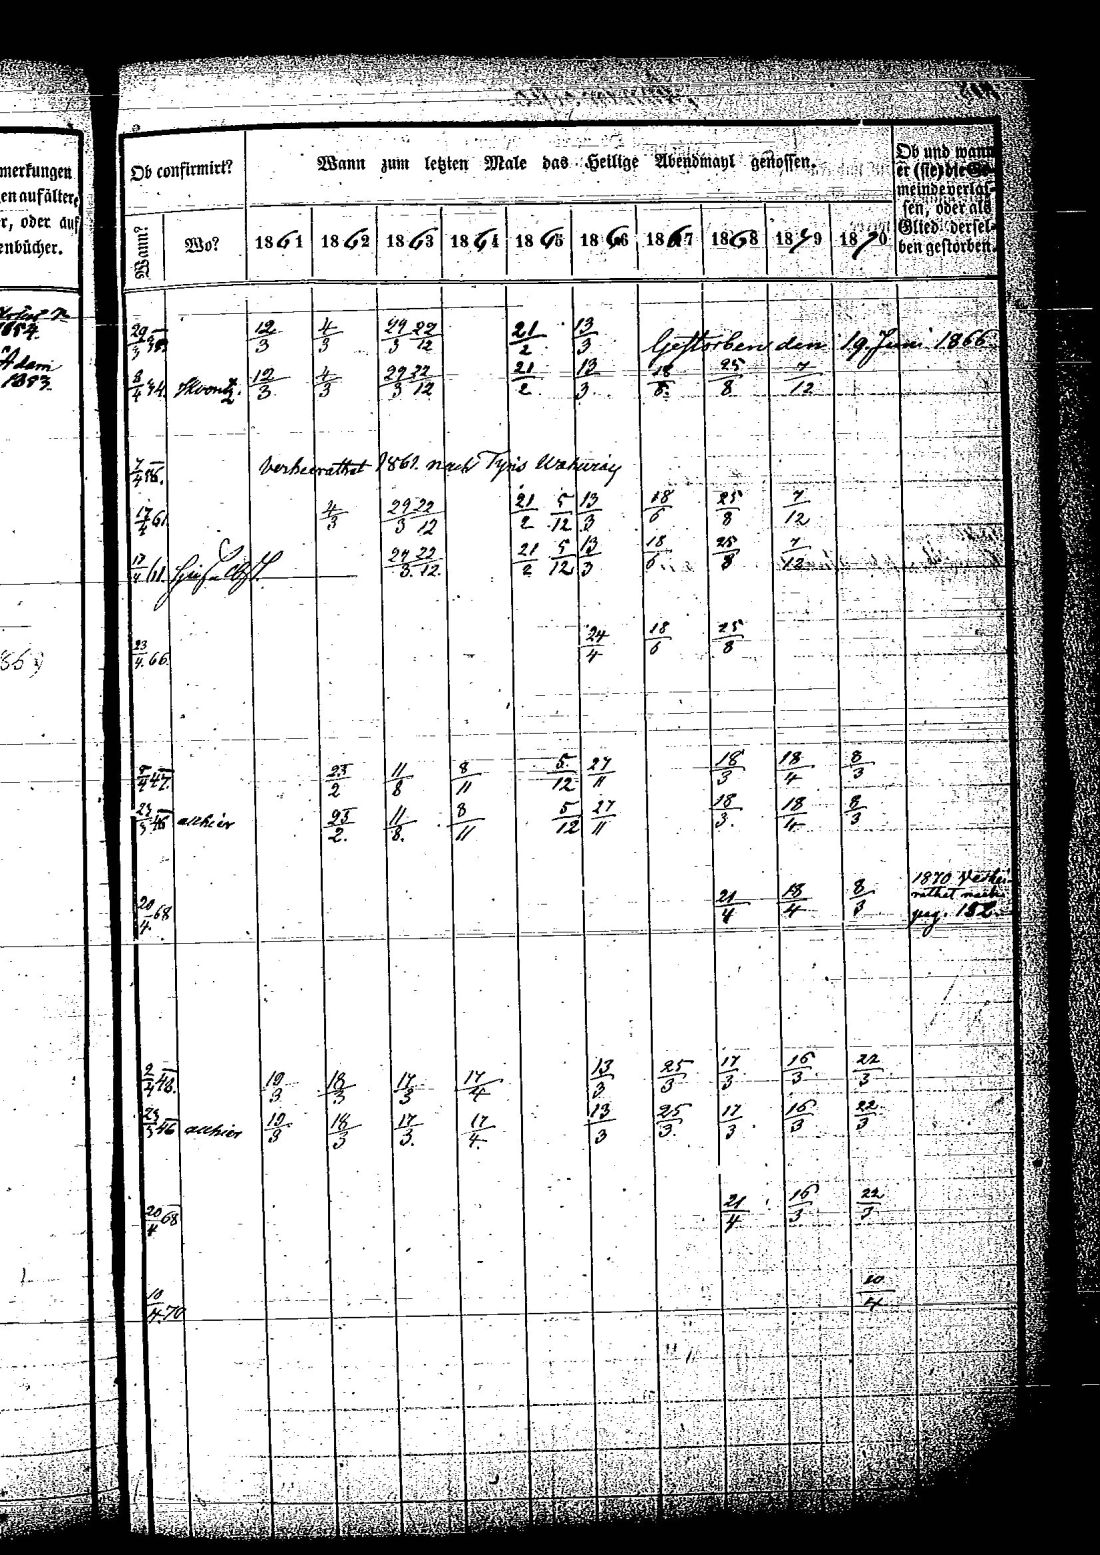 merkungen
en auf ältere
r, oder auf
enbücher.
Ob confirmirt?
Wann zum letzten Male das Heilige Abendmahl genossen.
Ob und wann
er (sie) die Ge-
meinde verlas-
sen, oder als
Glied dersel-
ben gestorben.
Wann? Wo? 1861 1862 1863 1864 1865 1866 1867 1868 1869 1870
1854.
Adam
1883
29/3 38. 12/3 4/3 29/3 22/12 21/2 13/3 Gestorben den 19. Juni 1866
8/4 34. 12/3 4/3 29/3 22/12 21/2 13/3 18/8 25/8 7/12
7/4 56. Verheirathet 1861. nach
17/4 61. 4/3 29/3 22/12 21/2 5/12 13/3 18/6 25/8 7/12
17/4 61. 29/3. 22/12. 21/2 5/12 13/3 18/6. 25/8 7/12
23/4. 66. 24/4 18/6 25/8
8/4 47. 23/2 11/8 8/11 5/12 27/11 18/3 18/4 8/3
23/3 46 allhier 23/2. 11/8. 8/11 5/12 27/11 18/3. 18/4 8/3
20/4. 68 21/4 18/4 8/3 1870 Verhei-
rathet nach
pag. 152.
2/4 48. 19/3 18/3 17/3 17/4 13/3 25/3 17/3 16/3. 22/3
23/3 46 allhier 19/3 18/3 17/3. 17/4. 13/3 25/3. 17/3 16/3. 22/3
20/4 68 21/4 16/3. 22/3
10/4. 70 10/4